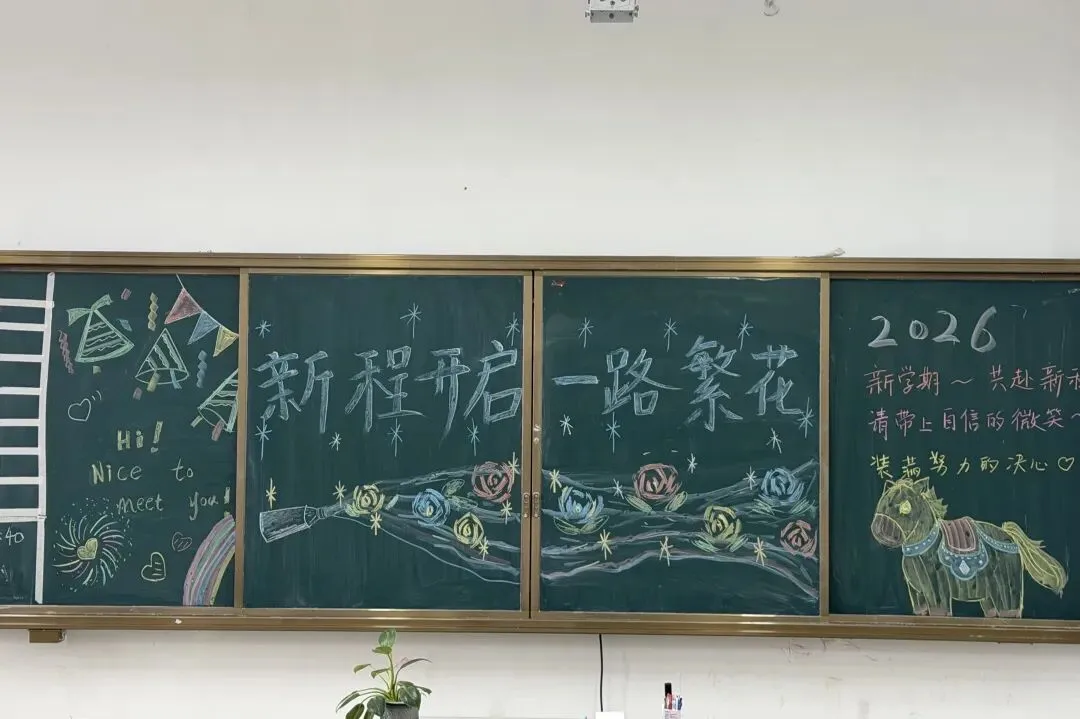 Hi!
Nice to
meet you!
:40
新程开启 一路繁花
2026
新学期～共赴新
请带上自信的微笑～
装满努力的决心♡